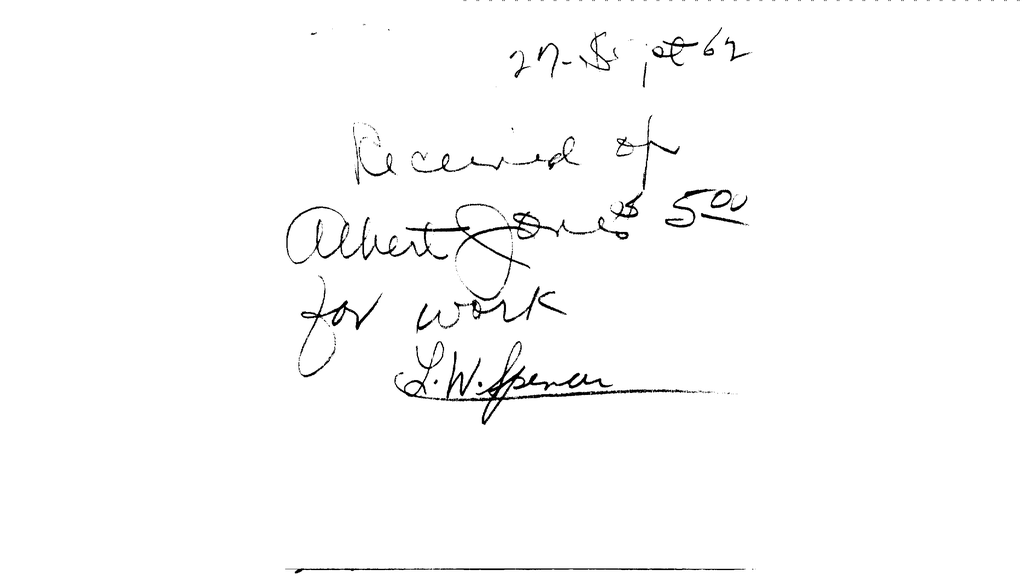 27 - Sept 62
Received of
Albert Jones $ 5.00
for work
L. W. Spencer